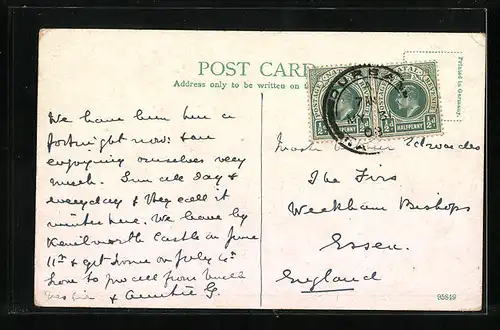 POST CARD
Address only to be written on
Printed in Germany.
POSTAGE
NATAL
POSTAGE
½d HALFPENNY
½d HALFPENNY ½d
DURBAN
We have been here a
fortnight now & are
enjoying ourselves very
much. Sun all day &
everyday & they call it
winter here. We leave by
Kenilworth Castle on June
11th & get home on July 4th
Love to you all from Uncle
& Auntie G.
Edwardes
The Firs
Weekham Bishops
Essex.
England
95819